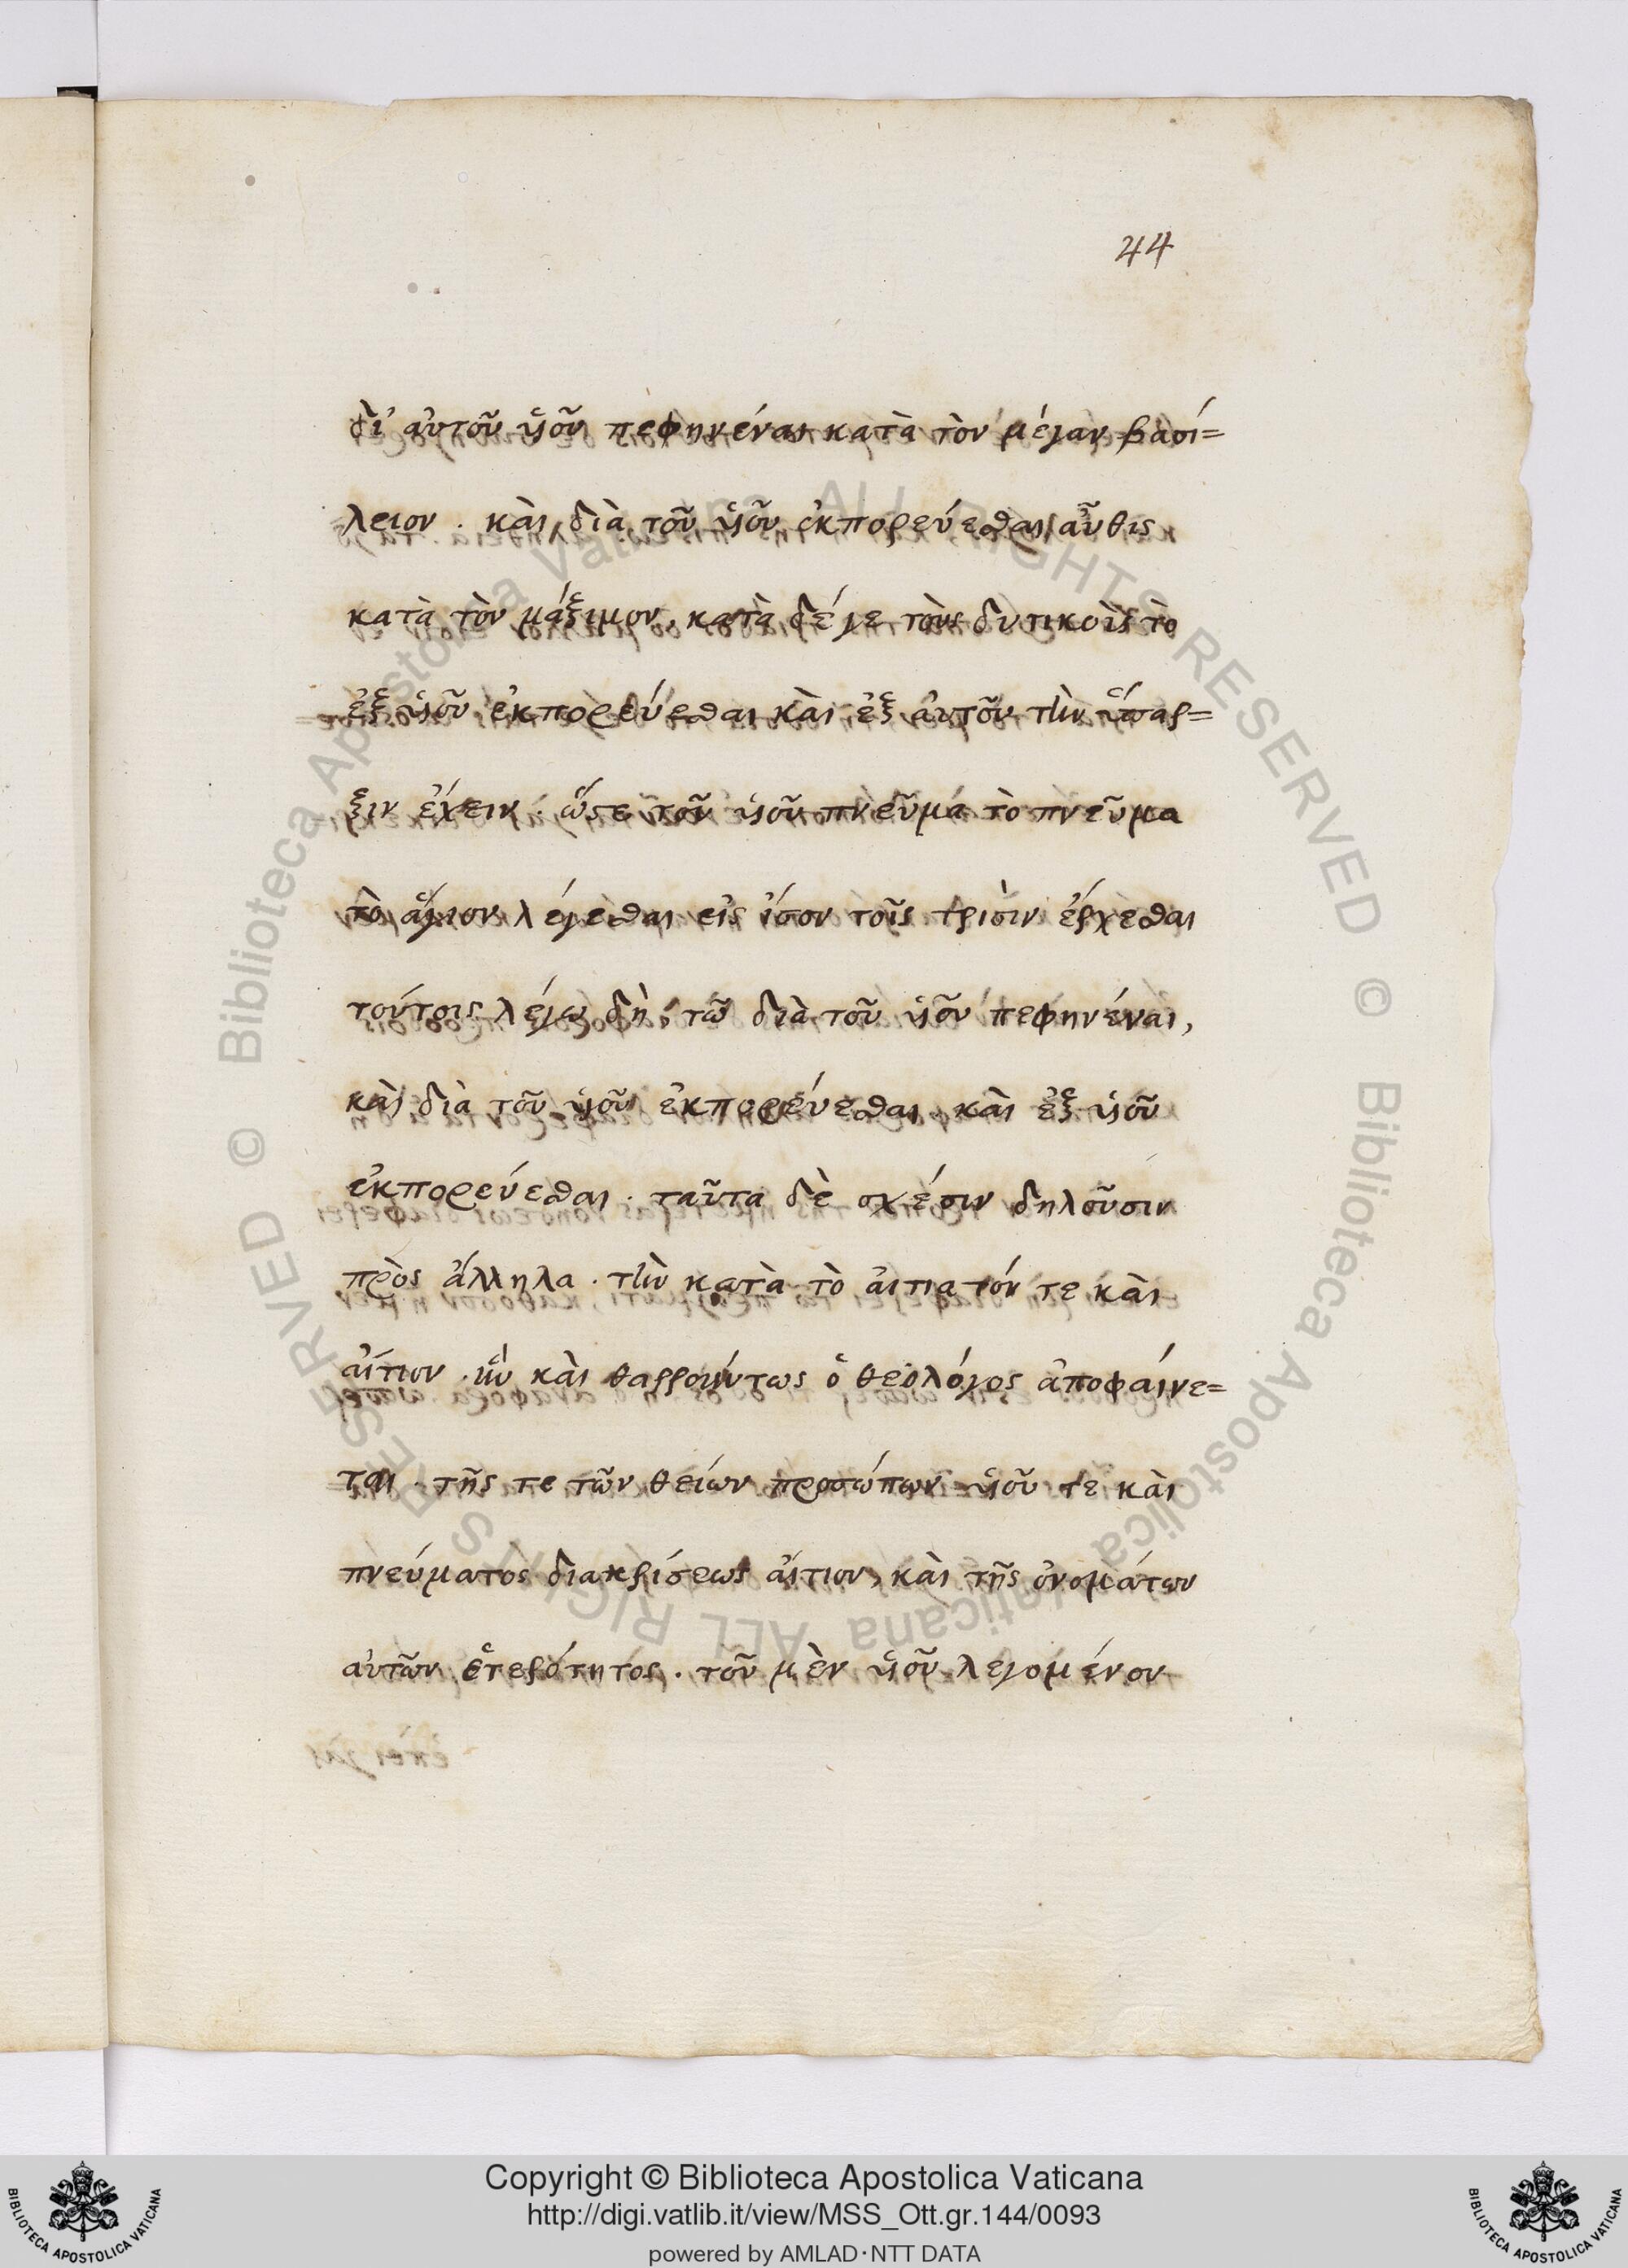 44
δι' αὐτοῦ ὑιοῦ πεφηνέναι κατὰ τὸν μέγαν βασί=
λειον . καὶ διὰ τοῦ ὑιοῦ ἐκπορεύεσθαι αὖθις
κατὰ τὸν μάξιμον, κατὰ δέ γε τοὺς δυτικοὺς τὸ
ἐξ ὑιοῦ ἐκπορεύεσθαι καὶ ἐξ αὐτοῦ τὴν ὕπαρ=
ξιν ἔχειν . ὥστε τοῦ ὑιοῦ πνεῦμα τὸ πνεῦμα
τὸ ἅγιον λέγεσθαι εἰς ἴσον τοῖς τρισὶν ἔρχεσθαι
τούτοις λέγω δὴ, τῶ διὰ τοῦ ὑιοῦ πεφηνέναι,
καὶ διὰ τοῦ ὑιοῦ ἐκπορεύεσθαι, καὶ ἐξ ὑιοῦ
ἐκπορεύεσθαι . ταῦτα δὲ σχέσιν δηλοῦσιν
πρὸς ἄλληλα . τὴν κατὰ τὸ αἰτιατόν τε καὶ
αἴτιον . ἣν καὶ θαρρούντως ὁ θεολόγος ἀποφαίνε=
ται . τῆς τε τῶν θείων προσώπων ὑιοῦ τε καὶ
πνεύματος διακρίσεως αἴτιον, καὶ τῆς ὀνομάτων
αὐτῶν ἑτερότητος . τοῦ μὲν ὑιοῦ λεγομένου
© Biblioteca Apostolica Vaticana ALL RIGHTS RESERVED
© Biblioteca Apostolica Vaticana ALL RIGHTS RESERVED
BIBLIOTECA APOSTOLICA VATICANA
Copyright © Biblioteca Apostolica Vaticana
http://digi.vatlib.it/view/MSS_Ott.gr.144/0093
powered by AMLAD·NTT DATA
BIBLIOTECA APOSTOLICA VATICANA